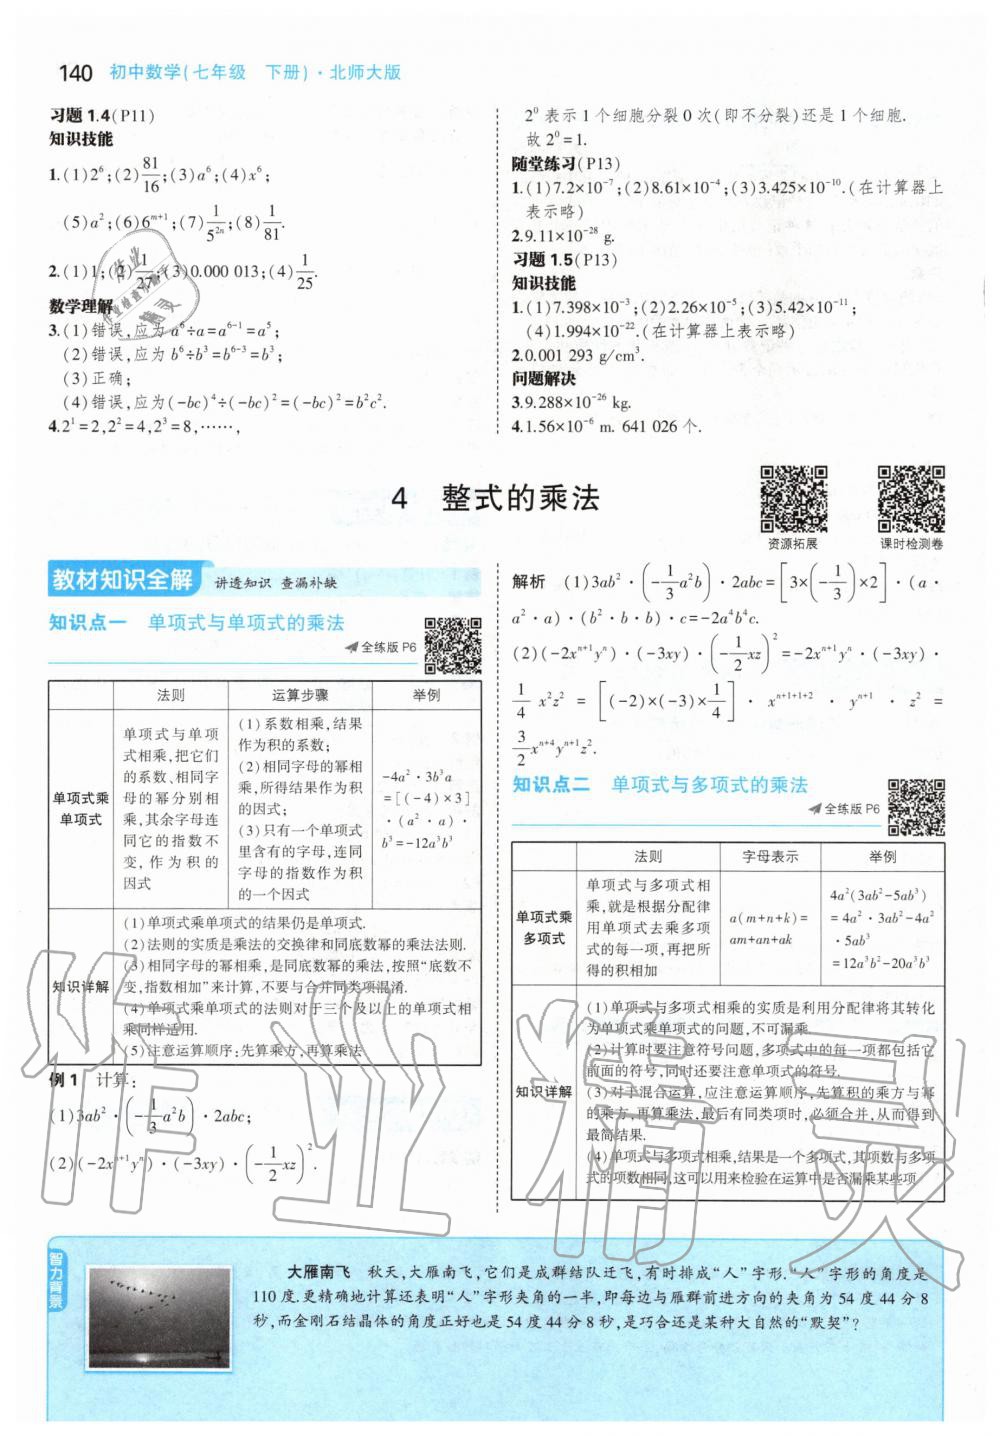 140 初中数学(七年级 下册)·北师大版
习题 1.4(P11)
知识技能
1.(1)2⁶;(2)81/16;(3)a⁶;(4)x⁶;
(5)a²;(6)6ᵐ⁺¹;(7)1/5²ⁿ;(8)1/81.
2.(1)1;(2)1/27;(3)0.000 013;(4)1/25.
数学理解
3.(1)错误,应为 a⁶÷a=a⁶⁻¹=a⁵;
(2)错误,应为 b⁶÷b³=b⁶⁻³=b³;
(3)正确;
(4)错误,应为(-bc)⁴÷(-bc)²=(-bc)²=b²c².
4.2¹=2,2²=4,2³=8,……,
2⁰ 表示 1 个细胞分裂 0 次(即不分裂)还是 1 个细胞.
故 2⁰=1.
随堂练习(P13)
1.(1)7.2×10⁻⁷;(2)8.61×10⁻⁴;(3)3.425×10⁻¹⁰.(在计算器上
表示略)
2.9.11×10⁻²⁸ g.
习题 1.5(P13)
知识技能
1.(1)7.398×10⁻³;(2)2.26×10⁻⁵;(3)5.42×10⁻¹¹;
(4)1.994×10⁻²².(在计算器上表示略)
2.0.001 293 g/cm³.
问题解决
3.9.288×10⁻²⁶ kg.
4.1.56×10⁻⁶ m. 641 026 个.
4 整式的乘法
资源拓展
课时检测卷
教材知识全解 讲透知识 查漏补缺
知识点一 单项式与单项式的乘法
全练版 P6
法则 运算步骤 举例
单项式乘
单项式
单项式与单项
式相乘,把它们
的系数、相同字
母的幂分别相
乘,其余字母连
同它的指数不
变,作为积的
因式
(1)系数相乘,结果
作为积的系数;
(2)相同字母的幂相
乘,所得结果作为积
的因式;
(3)只有一个单项式
里含有的字母,连同
字母的指数作为积
的一个因式
-4a²·3b³a
=[(-4)×3]
·(a²·a)·
b³=-12a³b³
知识详解
(1)单项式乘单项式的结果仍是单项式.
(2)法则的实质是乘法的交换律和同底数幂的乘法法则.
(3)相同字母的幂相乘,是同底数幂的乘法,按照“底数不
变,指数相加”来计算,不要与合并同类项混淆.
(4)单项式乘单项式的法则对于三个及以上的单项式相
乘同样适用.
(5)注意运算顺序:先算乘方,再算乘法
例 1 计算:
(1)3ab²·(-1/3 a²b)·2abc;
(2)(-2xⁿ⁺¹yⁿ)·(-3xy)·(-1/2 xz)².
解析 (1)3ab²·(-1/3 a²b)·2abc=[3×(-1/3)×2]·(a·
a²·a)·(b²·b·b)·c=-2a⁴b⁴c.
(2)(-2xⁿ⁺¹yⁿ)·(-3xy)·(-1/2 xz)²=-2xⁿ⁺¹yⁿ·(-3xy)·
1/4 x²z² = [(-2)×(-3)×1/4] · xⁿ⁺¹⁺¹⁺² · yⁿ⁺¹ · z² =
3/2 xⁿ⁺⁴yⁿ⁺¹z².
知识点二 单项式与多项式的乘法
全练版 P6
法则 字母表示 举例
单项式乘
多项式
单项式与多项式相
乘,就是根据分配律
用单项式去乘多项
式的每一项,再把所
得的积相加
a(m+n+k)=
am+an+ak
4a²(3ab²-5ab³)
=4a²·3ab²-4a²
·5ab³
=12a³b²-20a³b³
知识详解
(1)单项式与多项式相乘的实质是利用分配律将其转化
为单项式乘单项式的问题,不可漏乘.
(2)计算时要注意符号问题,多项式中的每一项都包括它
前面的符号,同时还要注意单项式的符号.
(3)对于混合运算,应注意运算顺序,先算积的乘方与幂
的乘方,再算乘法,最后有同类项时,必须合并,从而得到
最简结果.
(4)单项式与多项式相乘,结果是一个多项式,其项数与多项
式的项数相同,这可以用来检验在运算中是否漏乘某些项
智力背景
大雁南飞 秋天,大雁南飞,它们是成群结队迁飞,有时排成“人”字形.“人”字形的角度是
110 度.更精确地计算还表明“人”字形夹角的一半,即每边与雁群前进方向的夹角为 54 度 44 分 8
秒,而金刚石结晶体的角度正好也是 54 度 44 分 8 秒,是巧合还是某种大自然的“默契”?
作业精灵